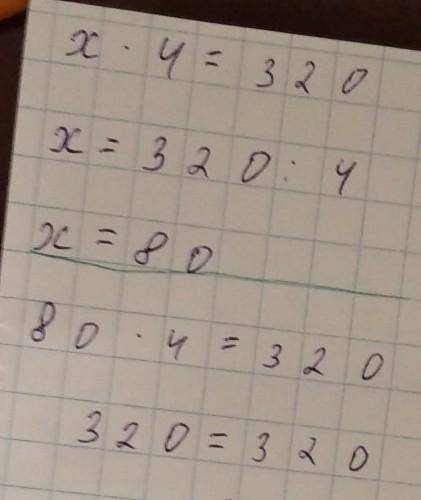 x · 4 = 320
x = 320 : 4
x = 80
80 · 4 = 320
320 = 320